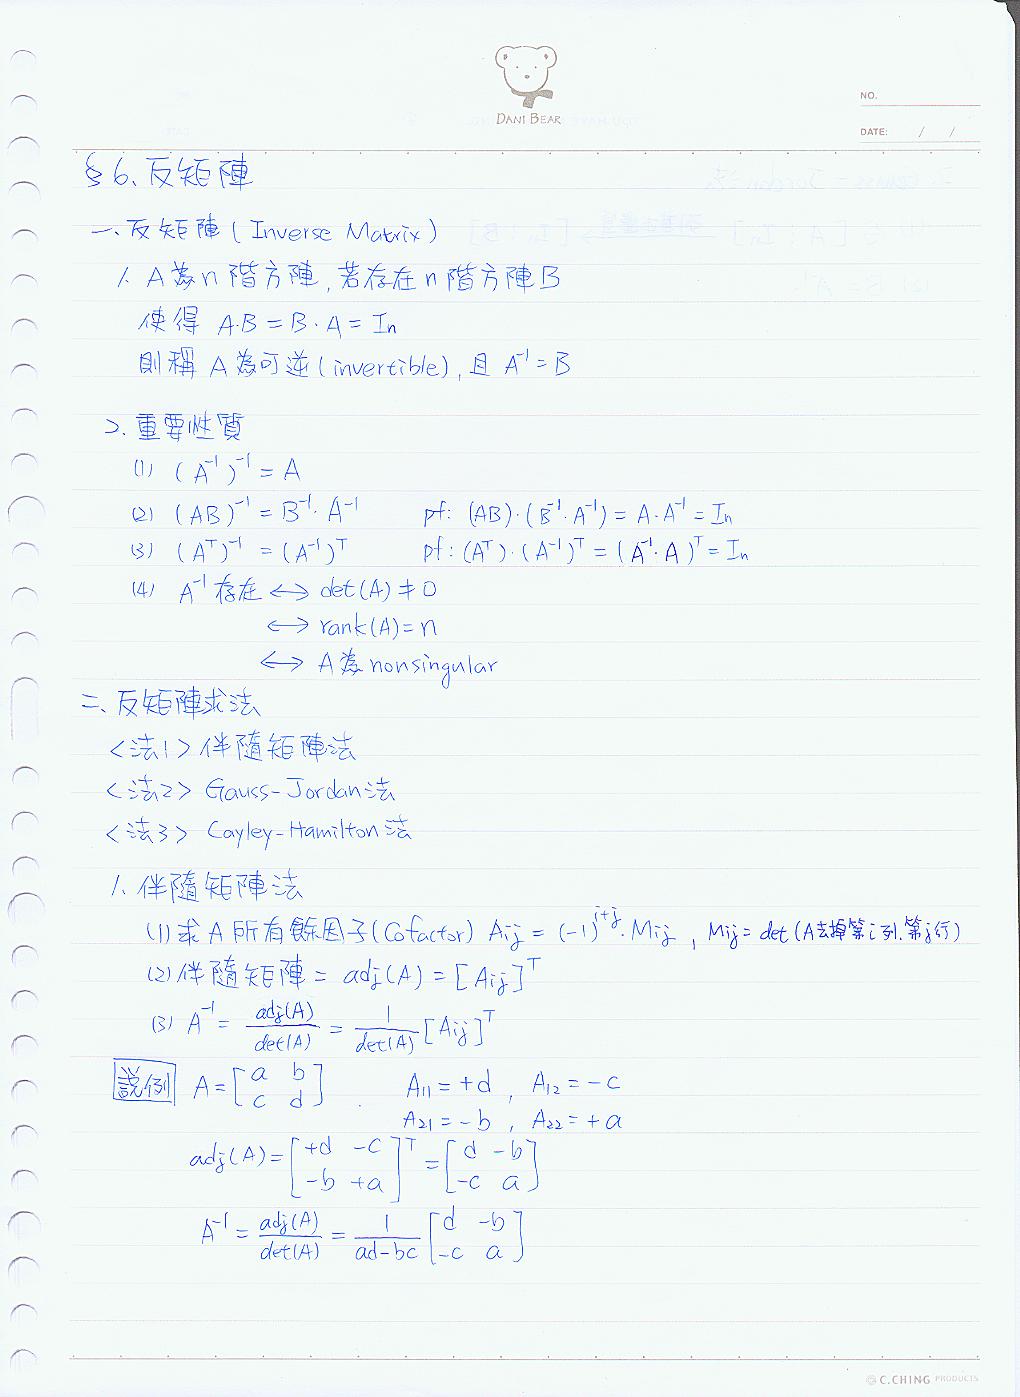 DANI BEAR
NO.
DATE: / /
§6、反矩陣
一、反矩陣(Inverse Matrix)
1. A為n階方陣,若存在n階方陣B
使得 A·B=B·A=In
則稱 A為可逆(invertible),且 A⁻¹=B
2. 重要性質
(1) (A⁻¹)⁻¹=A
(2) (AB)⁻¹=B⁻¹·A⁻¹ pf: (AB)·(B⁻¹·A⁻¹)=A·A⁻¹=In
(3) (Aᵀ)⁻¹=(A⁻¹)ᵀ pf: (Aᵀ)·(A⁻¹)ᵀ=(A⁻¹·A)ᵀ=In
(4) A⁻¹存在 ↔ det(A)≠0
↔ rank(A)=n
↔ A為nonsingular
二、反矩陣求法
<法1> 伴隨矩陣法
<法2> Gauss-Jordan法
<法3> Cayley-Hamilton法
1. 伴隨矩陣法
(1) 求A所有餘因子(Cofactor) Aij=(-1)^(i+j)·Mij , Mij=det(A去掉第i列、第j行)
(2) 伴隨矩陣=adj(A)=[Aij]ᵀ
(3) A⁻¹=adj(A)/det(A)=1/det(A) [Aij]ᵀ
說例 A=[a b; c d] A11=+d , A12=-c
A21=-b , A22=+a
adj(A)=[+d -c; -b +a]ᵀ=[d -b; -c a]
A⁻¹=adj(A)/det(A)=1/(ad-bc) [d -b; -c a]
C.CHING PRODUCTS